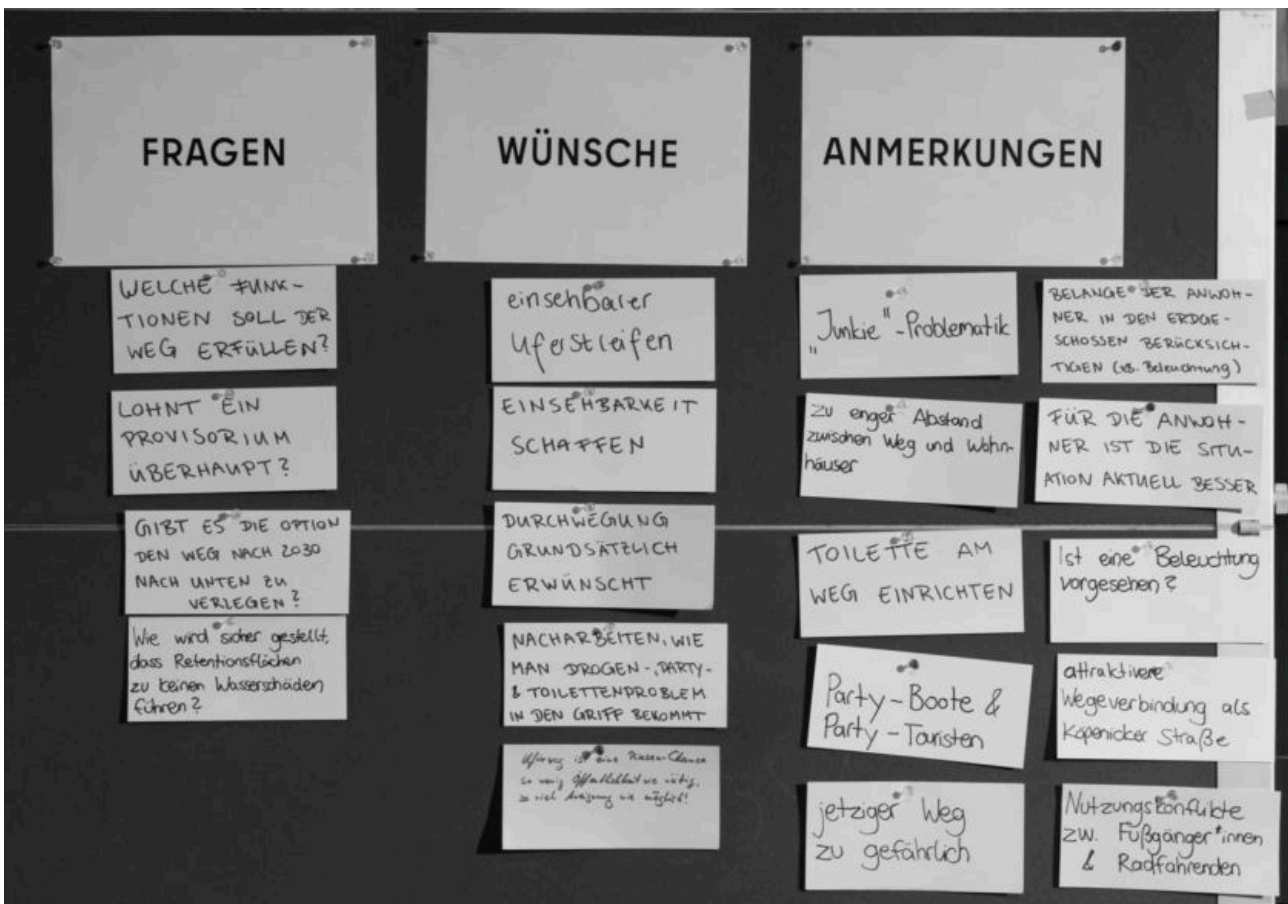 FRAGEN
WELCHE FUNK-
TIONEN SOLL DER
WEG ERFÜLLEN?
LOHNT EIN
PROVISORIUM
ÜBERHAUPT?
GIBT ES DIE OPTION
DEN WEG NACH 2030
NACH UNTEN ZU
VERLEGEN?
Wie wird sicher gestellt,
dass Retentionsflächen
zu keinen Wasserschäden
führen?
WÜNSCHE
einsehbarer
Uferstreifen
EINSEHBARKEIT
SCHAFFEN
DURCHWEGUNG
GRUNDSÄTZLICH
ERWÜNSCHT
NACHARBEITEN, WIE
MAN DROGEN-, PARTY-
& TOILETTENPROBLEM
IN DEN GRIFF BEKOMMT
Uferweg ist eine Riesen-Chance
so wenig Öffentlichkeit wie nötig,
so viel Aneignung wie möglich!
ANMERKUNGEN
„Junkie"-Problematik
zu enger Abstand
zwischen Weg und Wohn-
häuser
TOILETTE AM
WEG EINRICHTEN
Party-Boote &
Party-Touristen
jetziger Weg
zu gefährlich
BELANGE DER ANWOH-
NER IN DEN ERDGE-
SCHOSSEN BERÜCKSICH-
TIGEN (z.B. Beleuchtung)
FÜR DIE ANWOH-
NER IST DIE SITU-
ATION AKTUELL BESSER
Ist eine Beleuchtung
vorgesehen?
attraktivere
Wegeverbindung als
Köpenicker Straße
Nutzungskonflikte
zw. Fußgänger*innen
& Radfahrenden